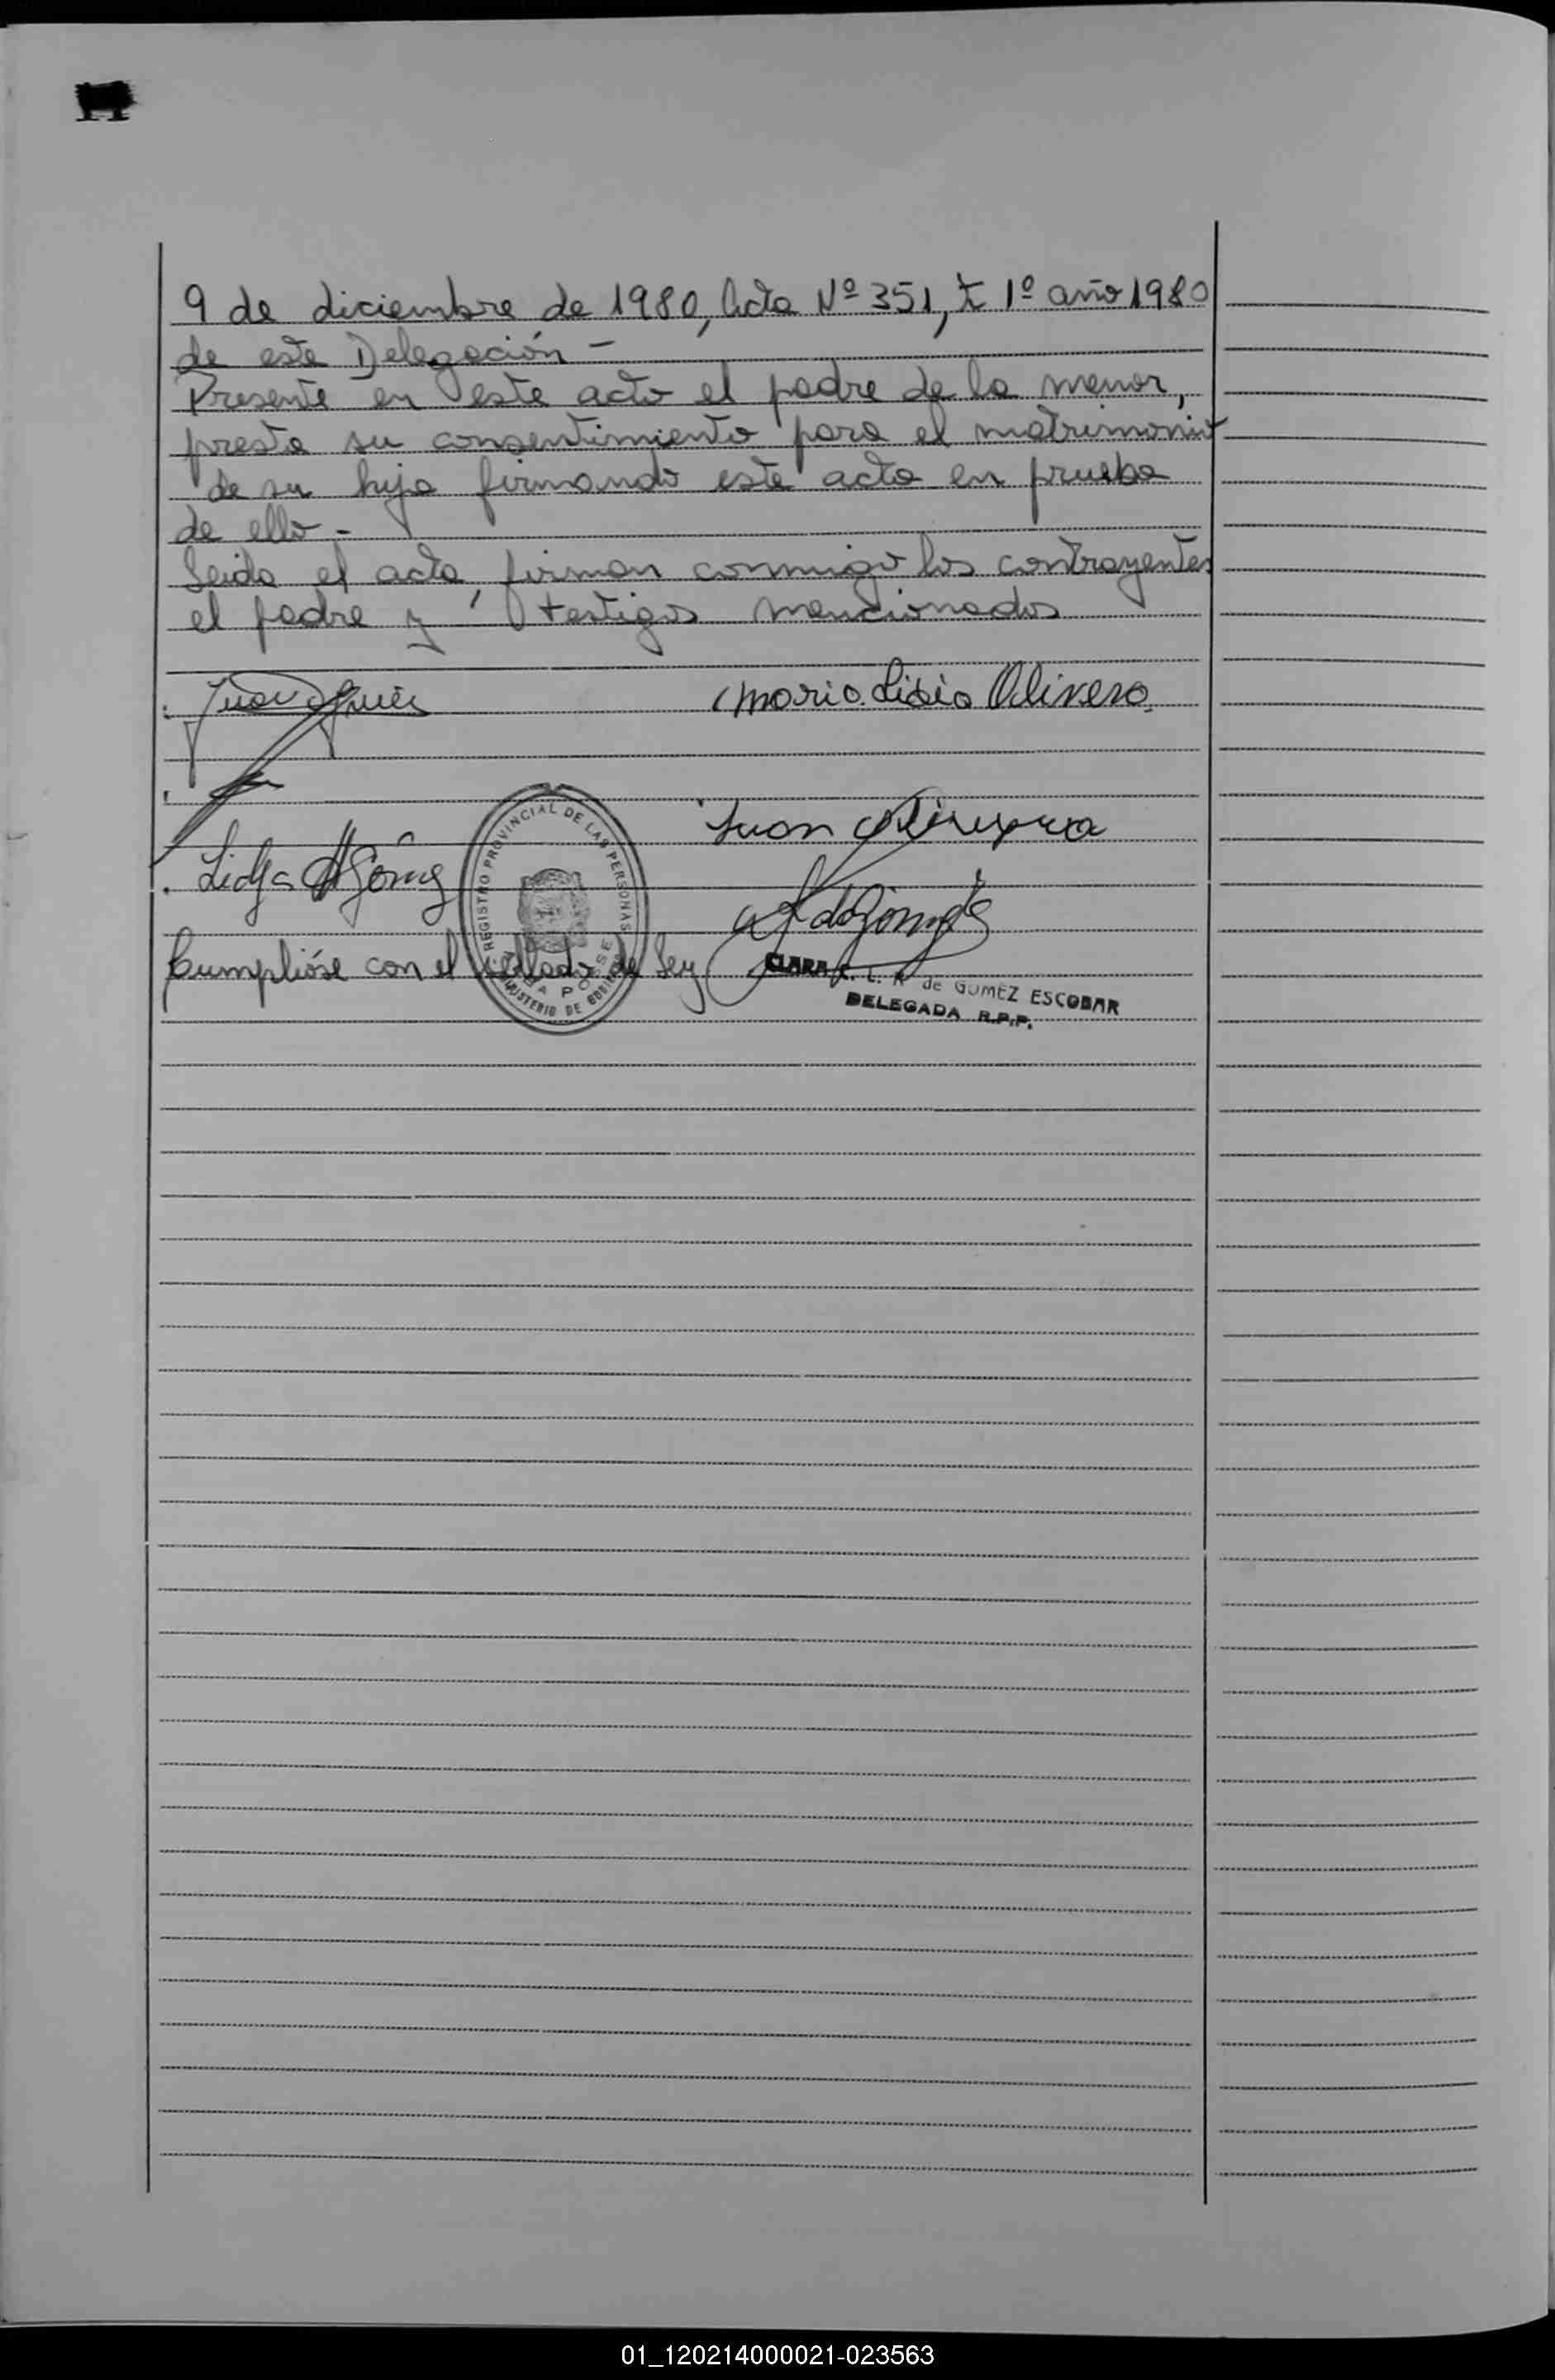 9 de diciembre de 1980, Acta Nº 351, t 1º año 1980
de esta Delegación -
Presente en este acto el padre de la menor,
presta su consentimiento para el matrimonio
de su hija firmando este acta en prueba
de ello -
Leida el acta, firman conmigo los contrayentes
el padre y testigos mencionados
Juan
Maria Lidia Olivera
Juan Olivera
Lidia
REGISTRO PROVINCIAL DE LAS PERSONAS
BA POSSE
MINISTERIO DE GOBIERNO
Cumplióse con el sellado de Ley
CLARA L. R de GOMEZ ESCOBAR
DELEGADA R.P.P.
01_120214000021-023563